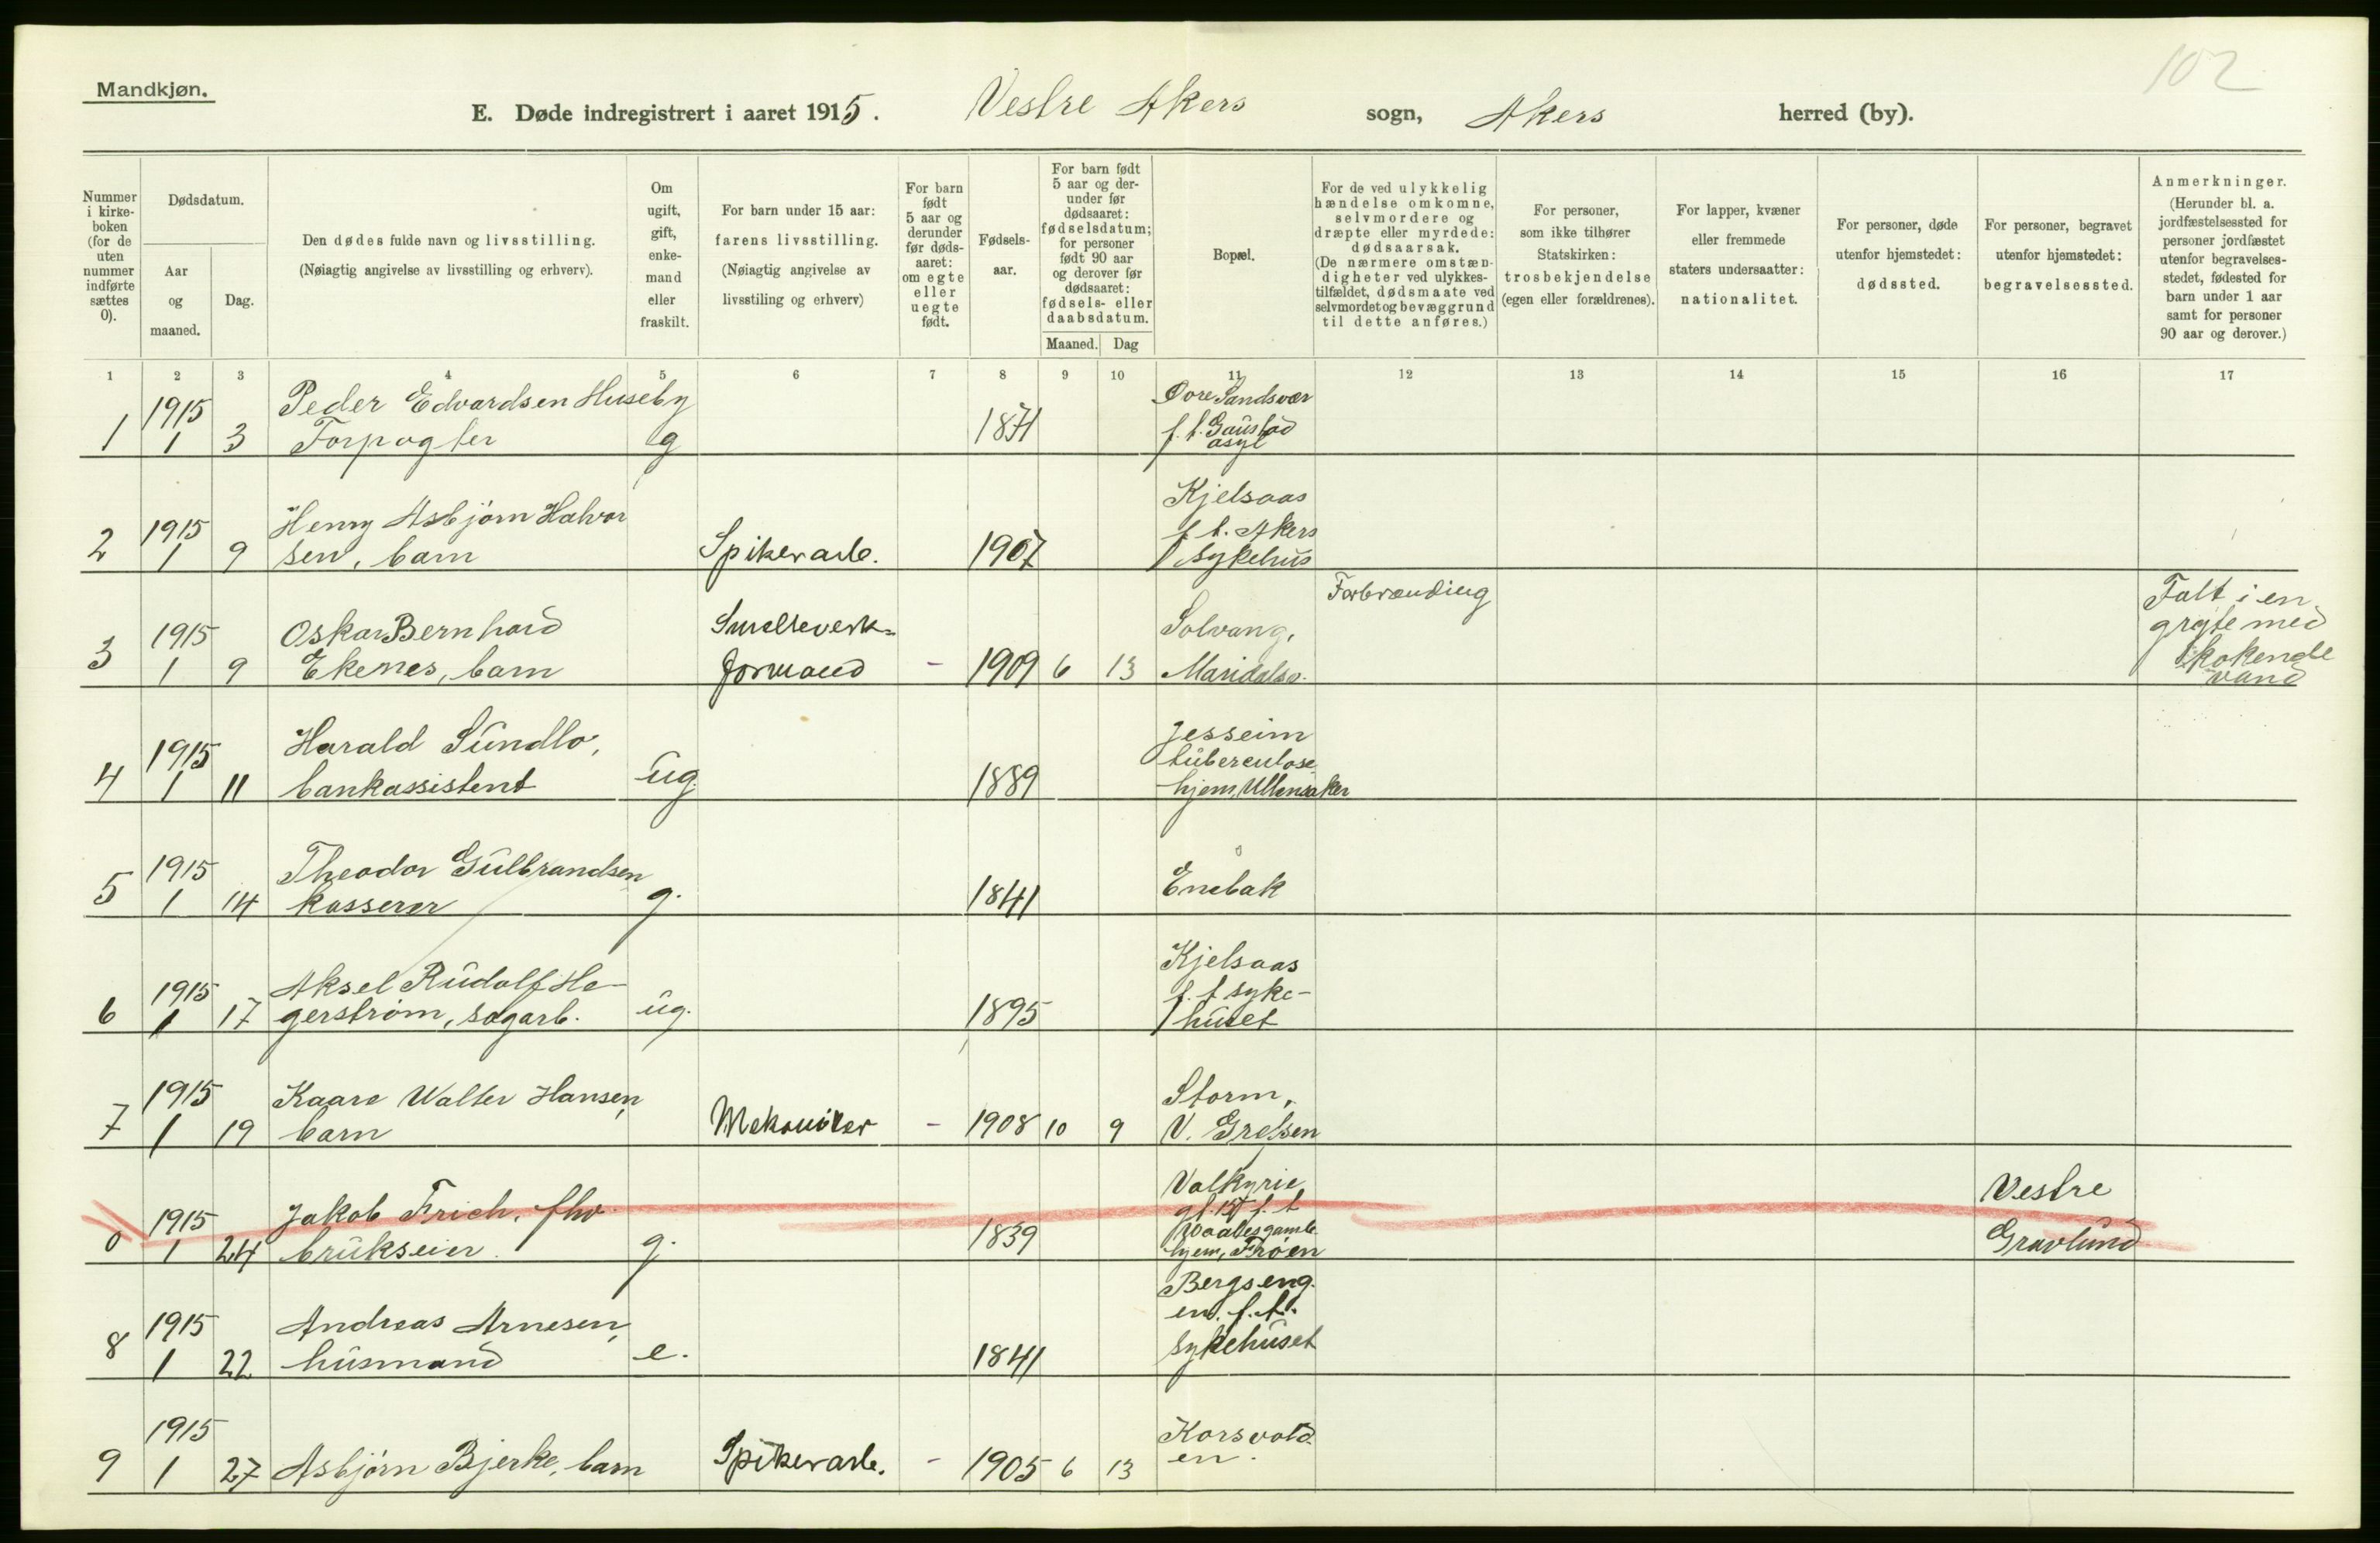 102
Mandkjøn.
E. Døde indregistrert i aaret 1915. Vestre Akers sogn, Akers herred (by).
Nummer i kirke- boken (for de uten nummer indførte sættes 0).
Dødsdatum.
Aar og maaned.
Dag.
Den dødes fulde navn og livsstilling.
(Nøiagtig angivelse av livsstilling og erhverv).
Om ugift, gift, enke- mand eller fraskilt.
For barn under 15 aar: farens livsstilling.
(Nøiagtig angivelse av livsstiling og erhverv)
For barn født 5 aar og derunder før døds- aaret: om egte eller uegte født.
Fødsels- aar.
For barn født 5 aar og der- under før dødsaaret: fødselsdatum; for personer født 90 aar og derover før dødsaaret: fødsels- eller daabsdatum.
Maaned. Dag
Bopæl.
For de ved ulykkelig hændelse omkomne, selvmordere og dræpte eller myrdede: dødsaarsak.
(De nærmere omstæn- digheter ved ulykkes- tilfældet, dødsmaate ved selvmordet og bevæggrund til dette anføres.)
For personer, som ikke tilhører Statskirken: trosbekjendelse (egen eller forældrenes).
For lapper, kvæner eller fremmede staters undersaatter: nationalitet.
For personer, døde utenfor hjemstedet: dødssted.
For personer, begravet utenfor hjemstedet: begravelsessted.
Anmerkninger.
(Herunder bl. a. jordfæstelsessted for personer jordfæstet utenfor begravelses- stedet, fødested for barn under 1 aar samt for personer 90 aar og derover.)
1 2 3 4 5 6 7 8 9 10 11 12 13 14 15 16 17
1915 Peder Edvardsen Huseby Øvre Sandsvær
1 1 3 Forpagter g 1871 f. t. Gaustad
asyl
Kjelsaas
1915 Henry Asbjørn Halvor f. t. Akers
2 1 9 sen, barn Spikerarb. 1907 Sykehus
Forbrænding Falt i en
1915 Oskar Bernhard Smelteverk- Solvang, gryte med
3 1 9 Ekenes, barn formand - 1909 6 13 Maridalsv. kokende
vand
Jesseim
1915 Harald Sundlo, tuberculose
4 1 11 bankassistent ug. 1889 hjem, Ullensaker
1915 Theodor Gulbrandsen
5 1 14 kasserer g. 1841 Enebak
Kjelsaas
1915 Aksel Rudolf Ha- f. t syke-
6 1 17 gerstrøm, sagarb. ug. 1895 huset
1915 Kaare Walter Hansen, Storm,
7 1 19 barn Mekaniker - 1908 10 9 V. Grefsen
Valkyrie
1915 Jakob Frich, fhv. f. t Vestre
0 1 24 brukseier. g. 1839 gamle- Gravlund
hjem, Frøen
Bergseng.
1915 Andreas Arnesen, en. f. t.
8 1 22 husmand e. 1841 sykehuset
1915 Korsvold
9 1 27 Asbjørn Bjerke, barn Spikerarb. - 1905 6 13 en.